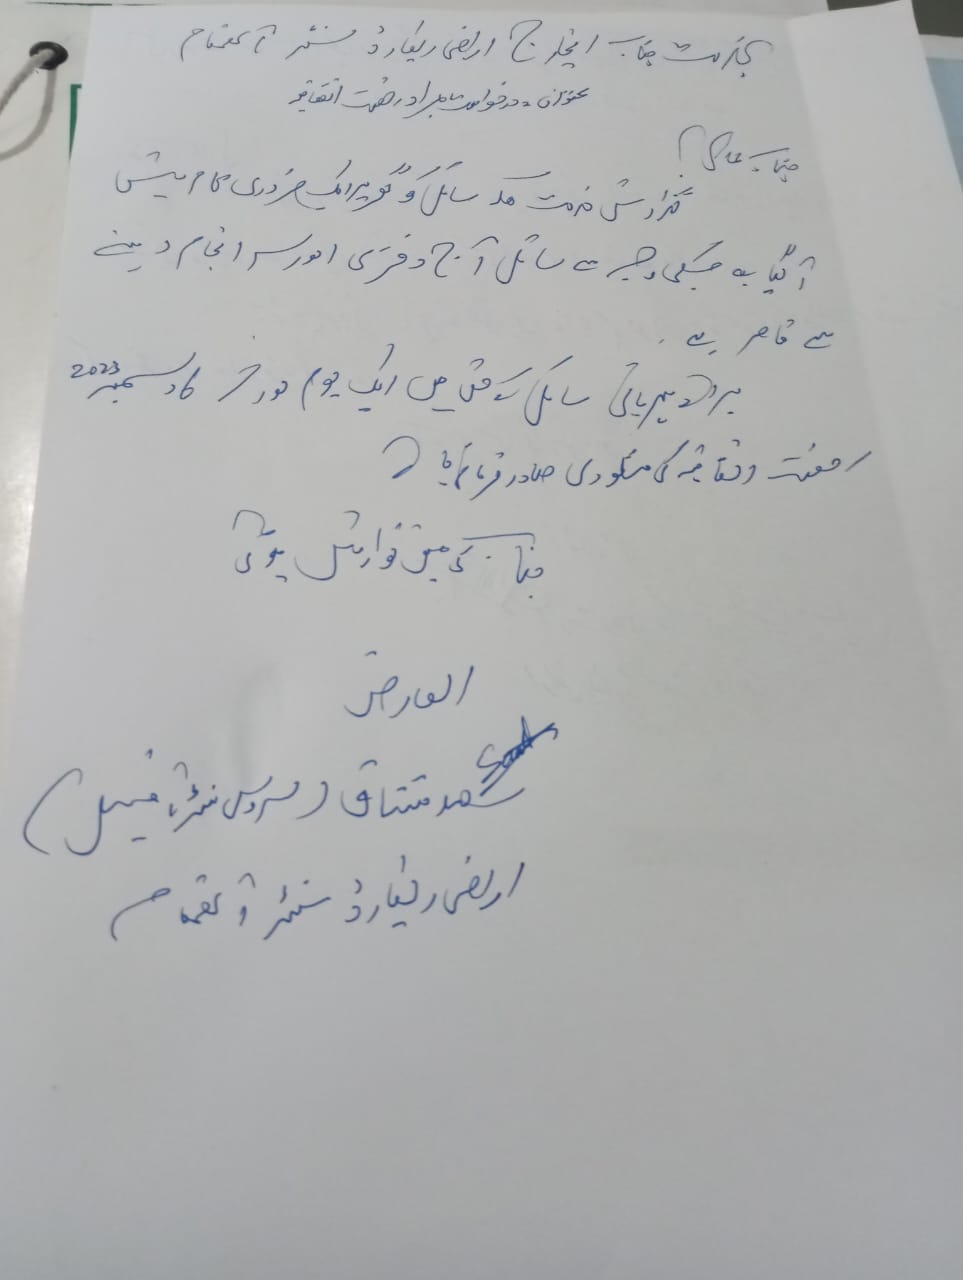 بخدمت جناب انچارج اراضی ریکارڈ سنٹر اٹھمقام
عنوان:۔ درخواست بمراد رخصت اتفاقیہ
جناب عالی!
گزارش خدمت ہیکہ سائل کو گھر پر ایک ضروری کام پیش
آ گیا ہے جسکی وجہ سے سائل آج دفتری امور سر انجام دینے
سے قاصر ہے۔
براہ مہربانی سائل کے حق میں ایک یوم مورخہ دسمبر 2023
رخصت اتفاقیہ کی منظوری صادر فرمائی جائے
جناب کی عین نوازش ہوگی
العارض
مشتاق (سروس سنٹر آفیشل)
اراضی ریکارڈ سنٹر اٹھمقام